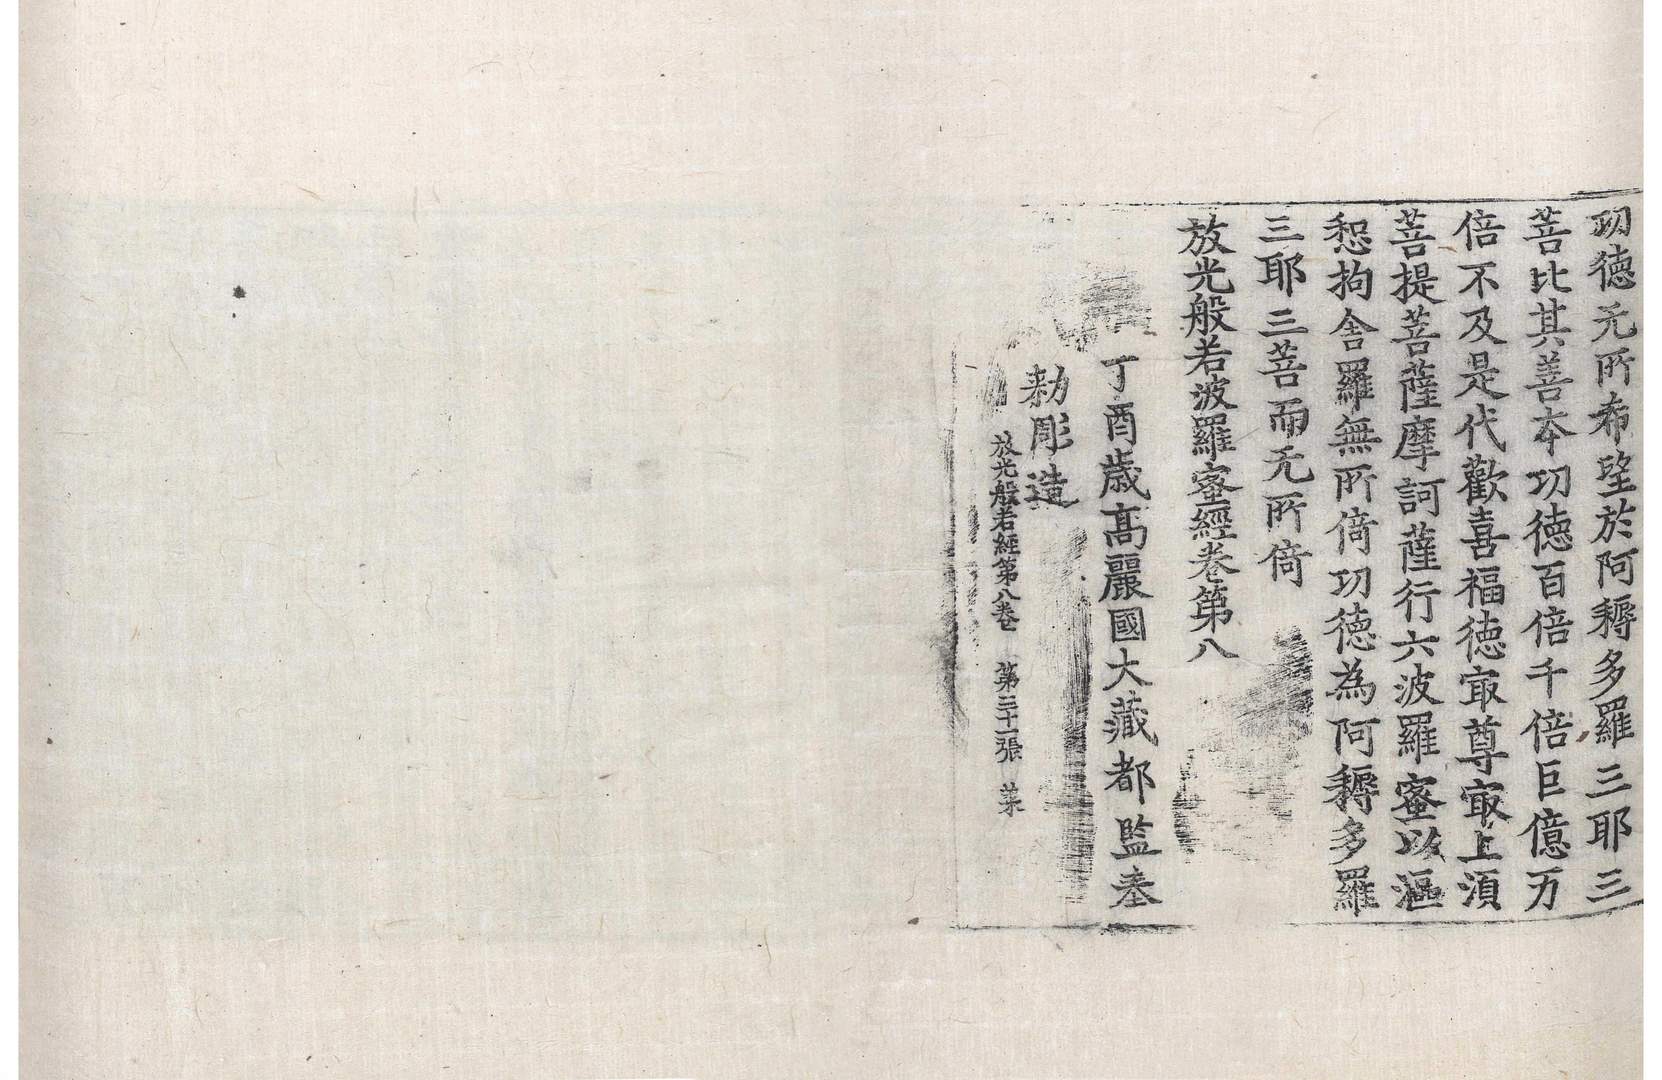 功德无所希望於阿耨多羅三耶三
菩比其善本功德百倍千倍巨億万
倍不及是代歡喜福德㝡尊㝡上湏
菩提菩薩摩訶薩行六波羅蜜以漚
惒拘舍羅無所倚功德為阿耨多羅
三耶三菩而无所倚
放光般若波羅蜜經卷第八
丁酉歲高麗國大藏都監奉
勑彫造
放光般若經第八卷 第三十一張 菜